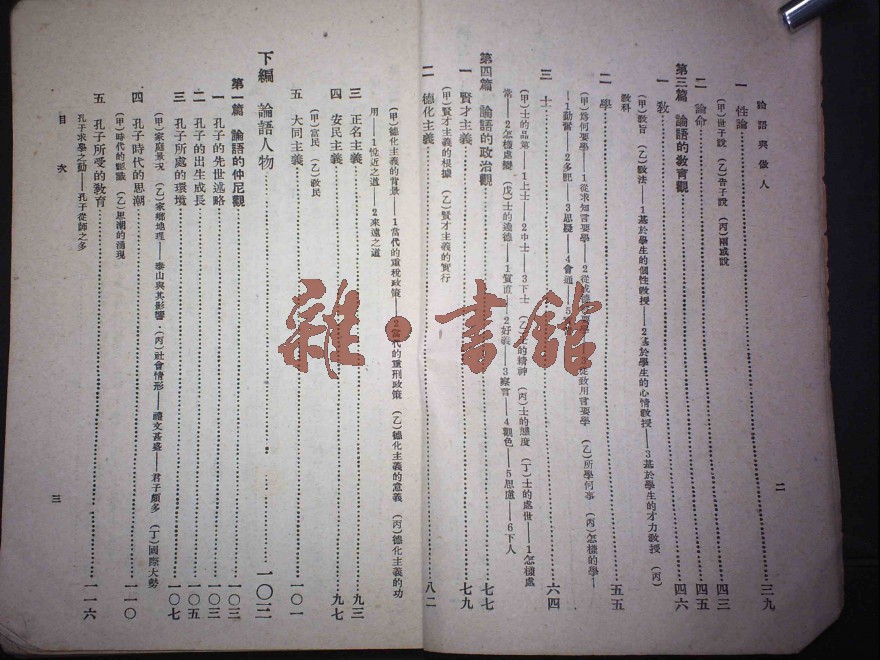 論語與做人
二
一 性論……三九
(甲)世子說 (乙)告子說 (丙)兩或說
二 論命……四三
第三篇 論語的教育觀……四六
一 教……四六
(甲)教旨 (乙)教法——1基於學生的個性教授——2基於學生的心情教授——3基於學生的才力教授 (丙)
教科
二 學……五五
(甲)爲何要學——1從求知言要學——2從成德言要學——3從致用言要學 (乙)所學何事 (丙)怎樣的學—
—1勤奮——2多記——3思疑——4會通——5
三 士……六四
(甲)士的品第——1上士——2中士——3下士 (乙)士的精神 (丙)士的態度 (丁)士的處世——1怎樣處
常——2怎樣處變 (戊)士的達德——1質直——2好義——3察言——4觀色——5思慮——6下人
第四篇 論語的政治觀……七七
一 賢才主義……七九
(甲)賢才主義的根據 (乙)賢才主義的實行
二 德化主義……八二
(甲)德化主義的背景——1當代的重稅政策——2當代的重刑政策 (乙)德化主義的意義 (丙)德化主義的功
用——1位近之道——2來遠之道
三 正名主義……九三
四 安民主義……九七
(甲)富民 (乙)教民
五 大同主義……一〇一
下編 論語人物……一〇三
第一篇 論語的仲尼觀……一〇三
一 孔子的先世述略……一〇三
二 孔子的出生成長……一〇五
三 孔子所處的環境……一〇七
(甲)家庭景況 (乙)家鄉地理——泰山與其影響 (丙)社會情形——禮文甚盛——君子頗多 (丁)國際大勢
四 孔子時代的思潮……一一〇
(甲)時代的認識 (乙)思潮的湧現
五 孔子所受的教育……一一六
孔子求學之勤——孔子從師之多
目次
三
雜·書館